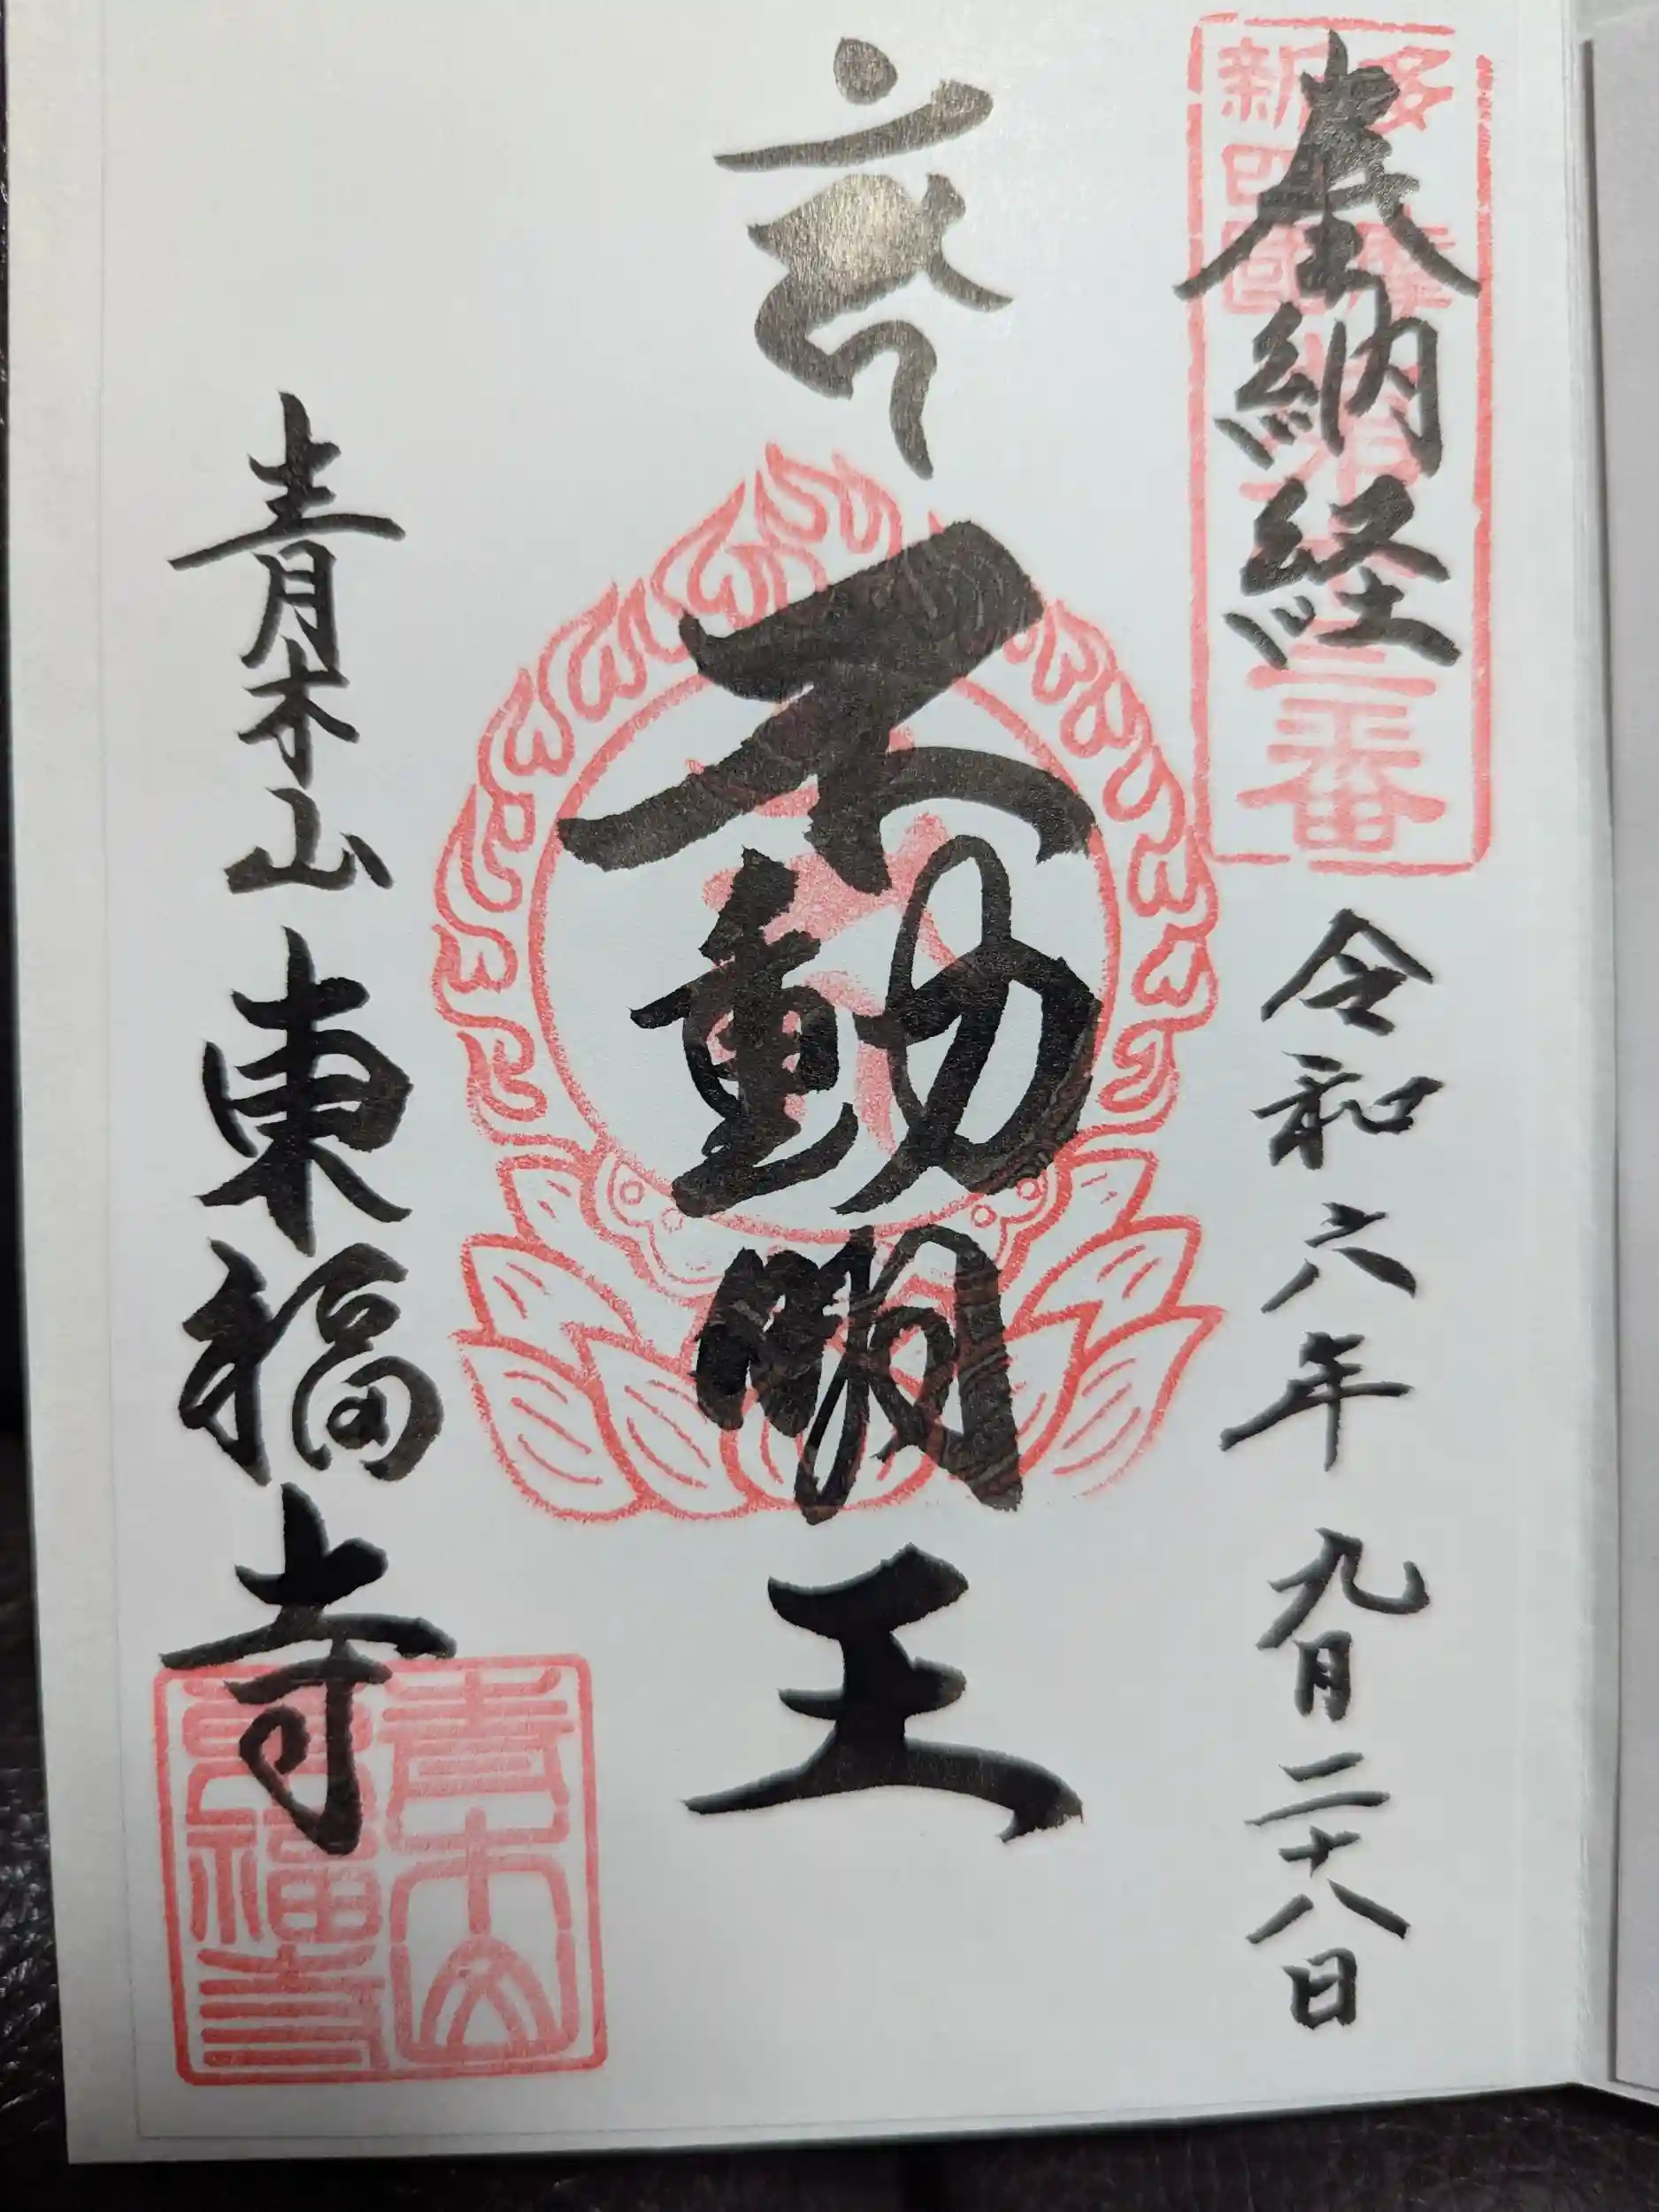 奉納経
令和六年 九月二十八日
不動明王
青木山 東福寺
多摩
新四國
番
青木山
東福寺